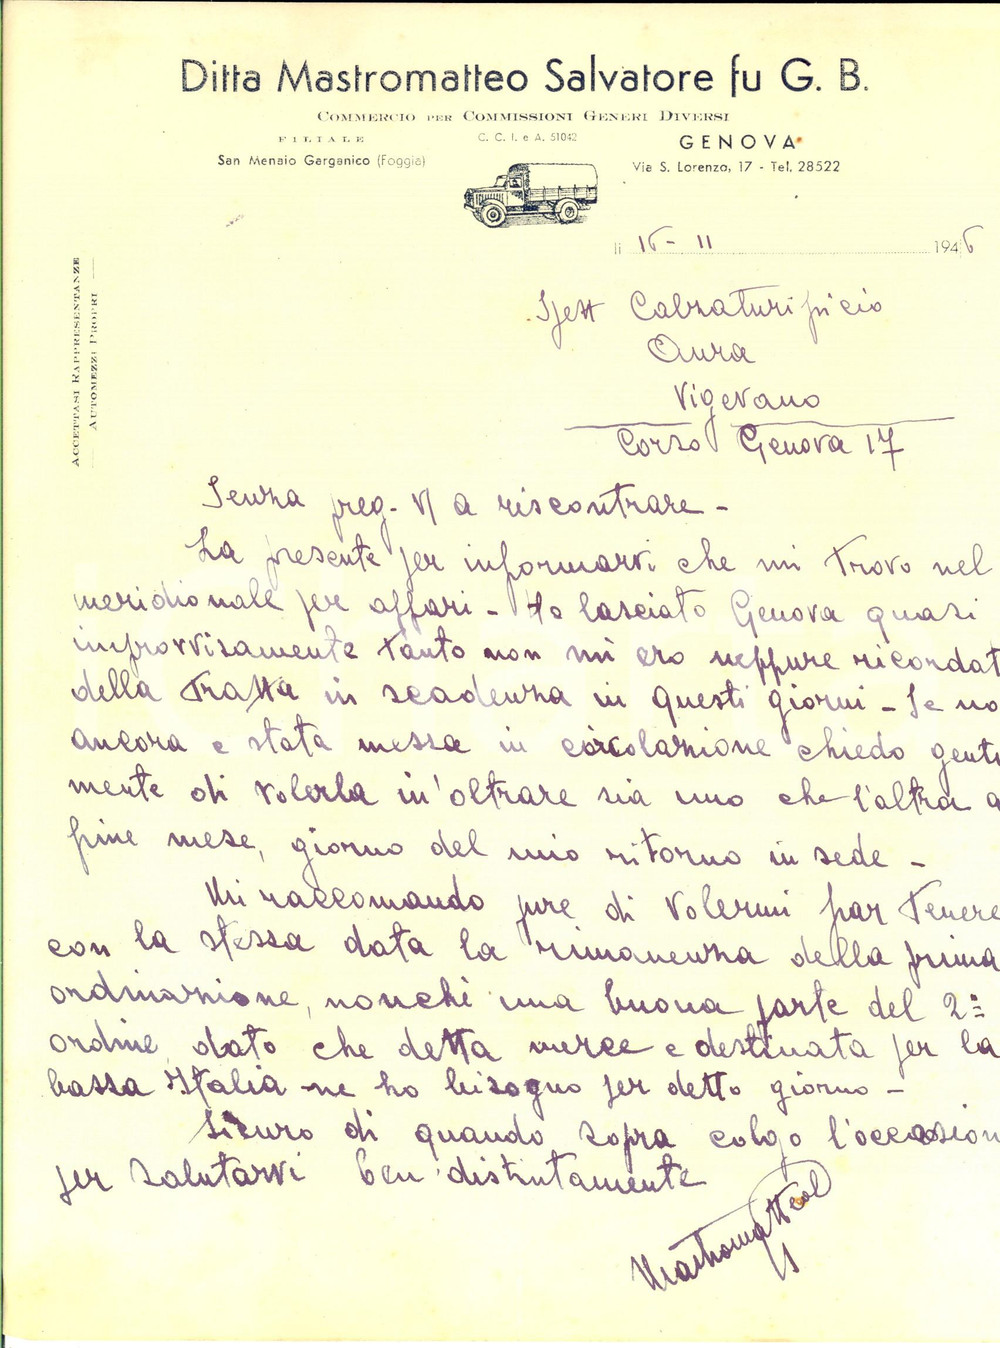 Ditta Mastromatteo Salvatore fu G. B.
COMMERCIO PER COMMISSIONI GENERI DIVERSI
FILIALE
San Menaio Garganico (Foggia)
C. C. I. e A. 51042
GENOVA
Via S. Lorenzo, 17 - Tel. 28522
li 16 - 11 1946
ACCETTASI RAPPRESENTANZE
AUTOMEZZI PROPRI
Spett Calzaturificio
Aura
Vigevano
Corso Genova 17
Senza preg. V/ a riscontrare -
La presente per informarvi che mi trovo nel
meridionale per affari - Ho lasciato Genova quasi
improvvisamente tanto non mi ero neppure ricordat
della Tratta in scadenza in questi giorni - Se no
ancora e stata messa in circolazione chiedo gentil
mente di volerla in'oltrare sia uno che l'altra a
fine mese, giorno del mio ritorno in sede -
Mi raccomando pure di volermi far tenere
con la stessa data la rimanenza della prima
ordinazione, nonchè una buona parte del 2=
ordine, dato che detta merce e destinata per la
bassa Italia ne ho bisogno per detto giorno -
Sicuro di quando sopra colgo l'occasion
per salutarvi ben distintamente
Mastromatteo